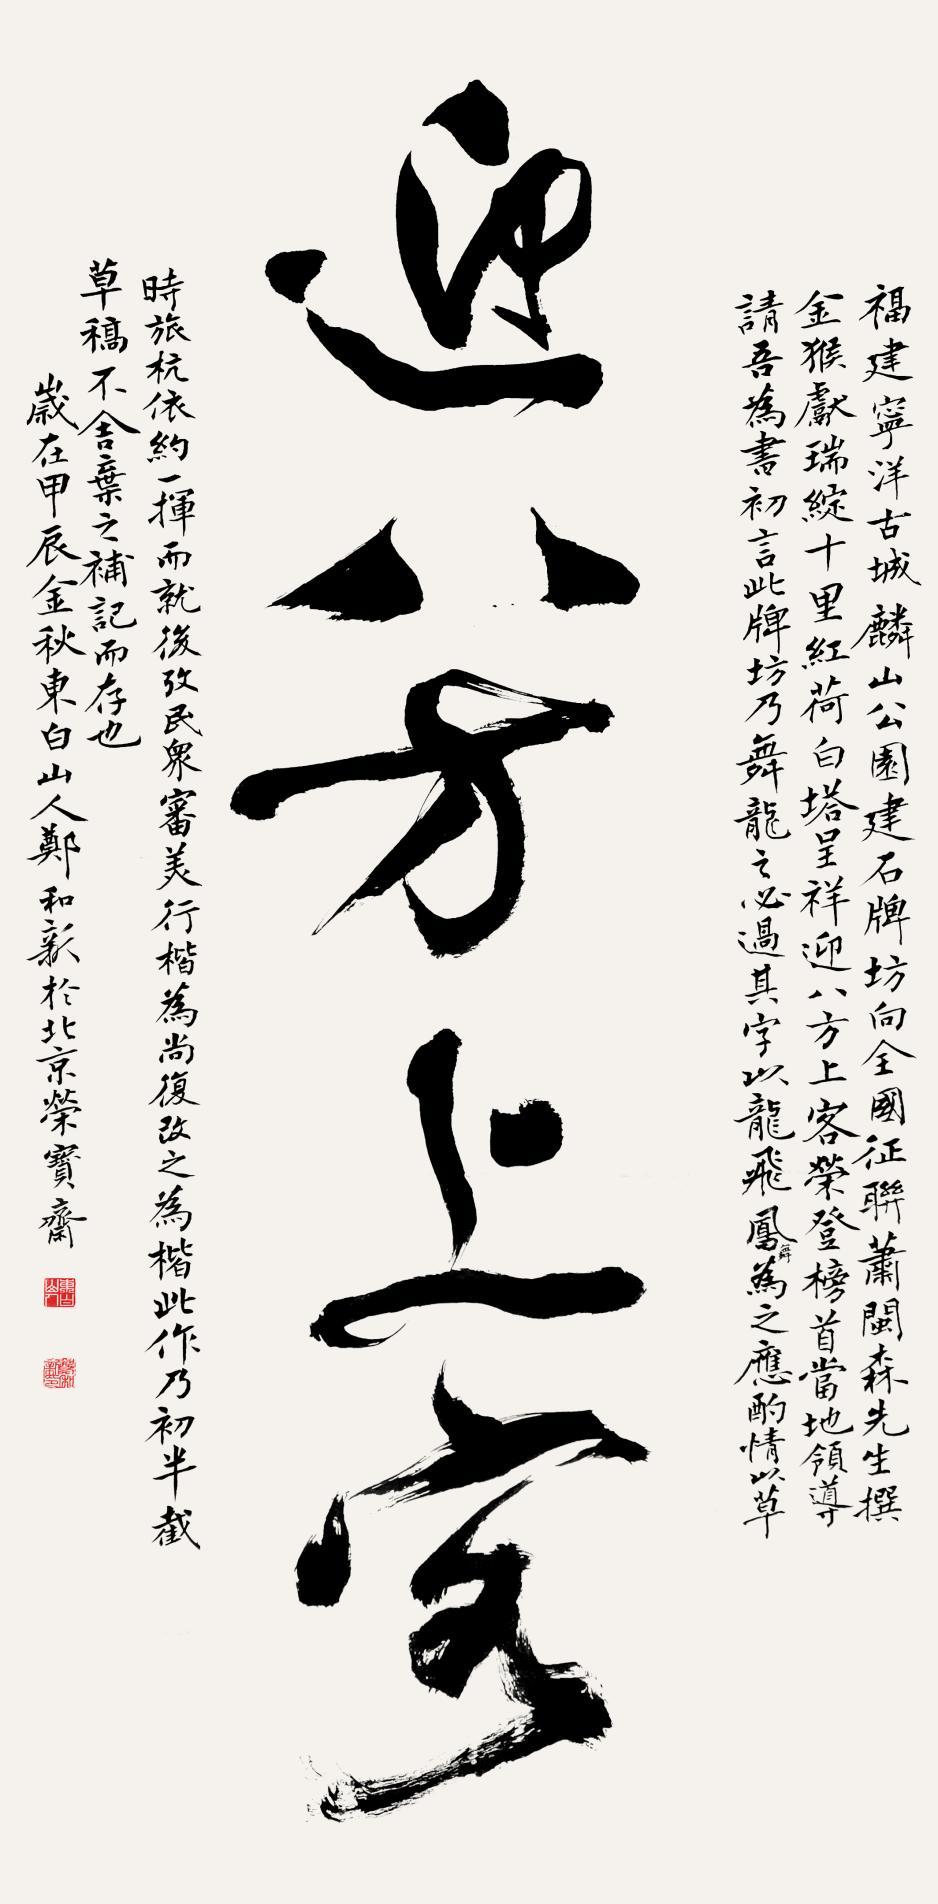 福建寧洋古城麟山公園建石牌坊向全國征聯蕭閩森先生撰
金猴獻瑞綻十里紅荷白塔呈祥迎八方上客榮登榜首當地領導
請吾為書初言此牌坊乃舞龍之必過其字以龍飛鳳舞為之應酌情以草
迎八方上客
時旅杭依約一揮而就後攷民衆審美行楷為尚復改之為楷此作乃初半截
草稿不舍棄之補記而存也
歲在甲辰金秋東白山人鄭和新於北京榮寶齋
東白山人